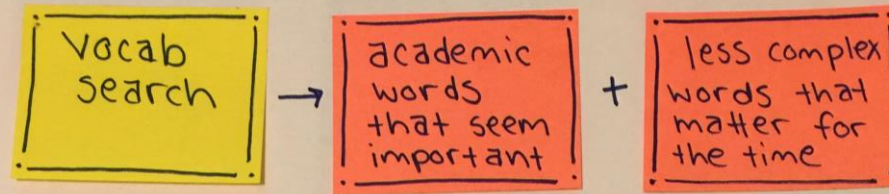 vocab
search
→
academic
words
that seem
important
+
less complex
words that
matter for
the time